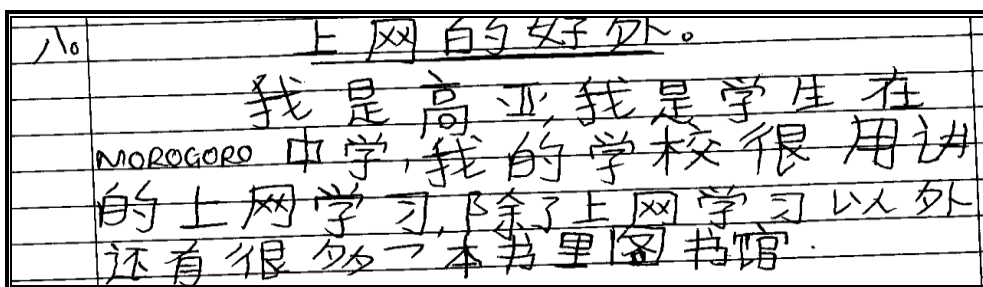 八。 上网的好处。
我是高亚,我是学生在
MOROGORO 中学,我的学校很用讲
的上网学习,除了上网学习以外
还有很多一本书里图书馆.